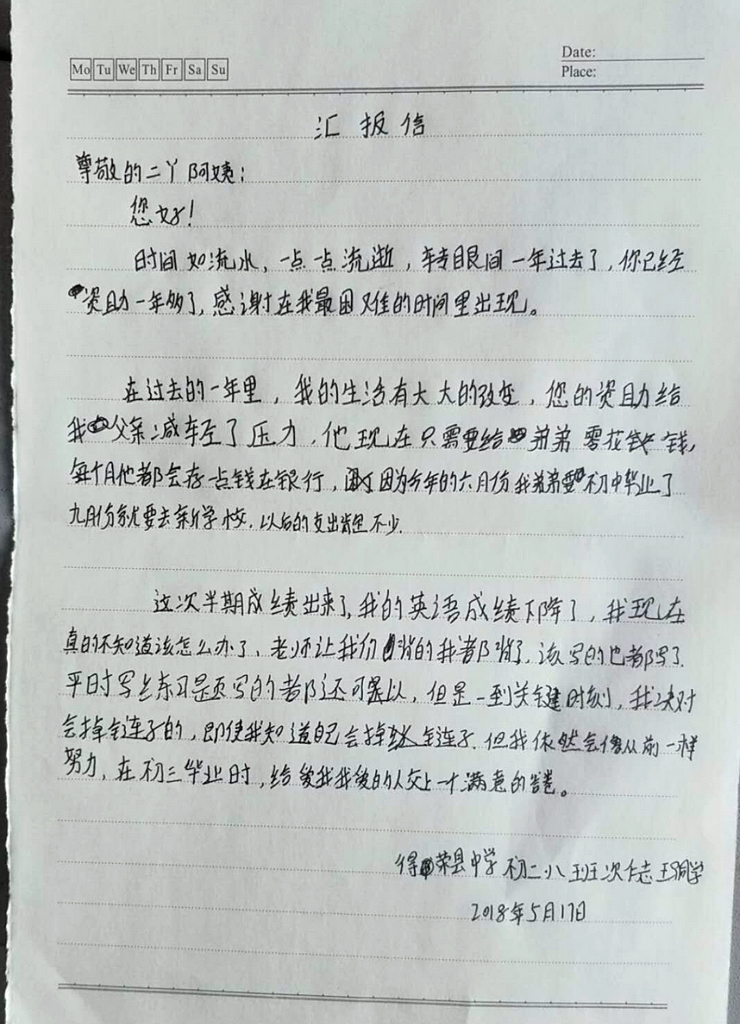 Mo Tu We Th Fr Sa Su
Date:
Place:
汇报信
尊敬的二丫阿姨：
您好！
时间如流水，一点一点流逝，转眼间一年过去了，你已经
资助一年多了，感谢在我最困难的时间里出现。
在过去的一年里，我的生活有大大的改变，您的资助给
我父亲减轻了压力，他现在只需要给弟弟零花钱，
每个月他都会存一点钱在银行，因为今年的六月份我弟弟要初中毕业了
九月份就要去新学校，以后的支出肯定不少.
这次半期成绩出来了，我的英语成绩下降了，我现在
真的不知道该怎么办了、老师让我们背的我都背了，该写的也都写了.
平时写练习题写的都还可以，但是一到关键时刻，我决对
会掉链子的，即使我知道自己会掉链子.但我依然会像从前一样
努力，在初三毕业时，给我的人交上一个满意的答卷。
得荣县中学初二八班次仁志玛同学
2018年5月17日